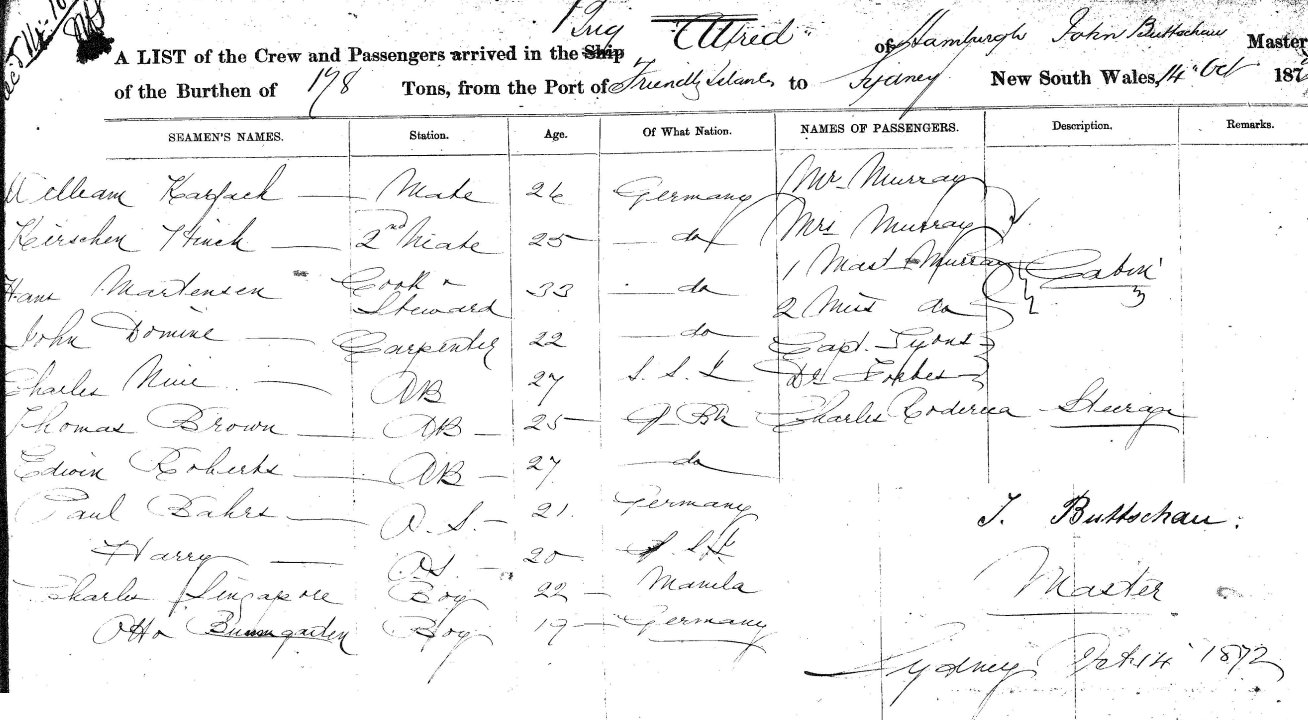 Brig "Alfred" of Hamburgh John Buttschau Master
A LIST of the Crew and Passengers arrived in the Ship
of the Burthen of 178 Tons, from the Port of Friendly Islands to Sydney New South Wales, 14" Oct 1872
SEAMEN'S NAMES. Station. Age. Of What Nation. NAMES OF PASSENGERS. Description. Remarks.
William Karjack — Mate 26 Germany Mr. Murray
Kirschen Hinck — 2nd Mate 25 — do Mrs Murray
Hans Martensen Cook & Steward 33 — do 1 Mast Murray Cabin
John Domine — Carpenter 22 — do 2 Miss do
Capt. Lyons
Charles Nine — AB 27 S. S. I. Dr Forbes
Thomas Brown — AB — 25 G. Br Charles Steerage
Edwin Roberts — AB — 27 — do
Paul Bahrs — O. S. — 21 Germany
J. Buttschau.
Harry — OS — 20 S. S. I.
Charles Singapore Boy 22 — Manila
Master
Otto Bumgarten Boy 19 — Germany
Sydney Oct 14" 1872